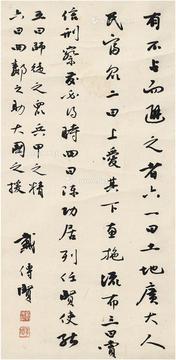 有不占而避之者六一曰土地廣大人
民富眾二曰上愛其下惠施流布三曰賞
信刑察發必得時四曰陳功居列任賢使能
五曰師徒之眾兵甲之精
六曰四鄰之助大國之援
戴傳賢